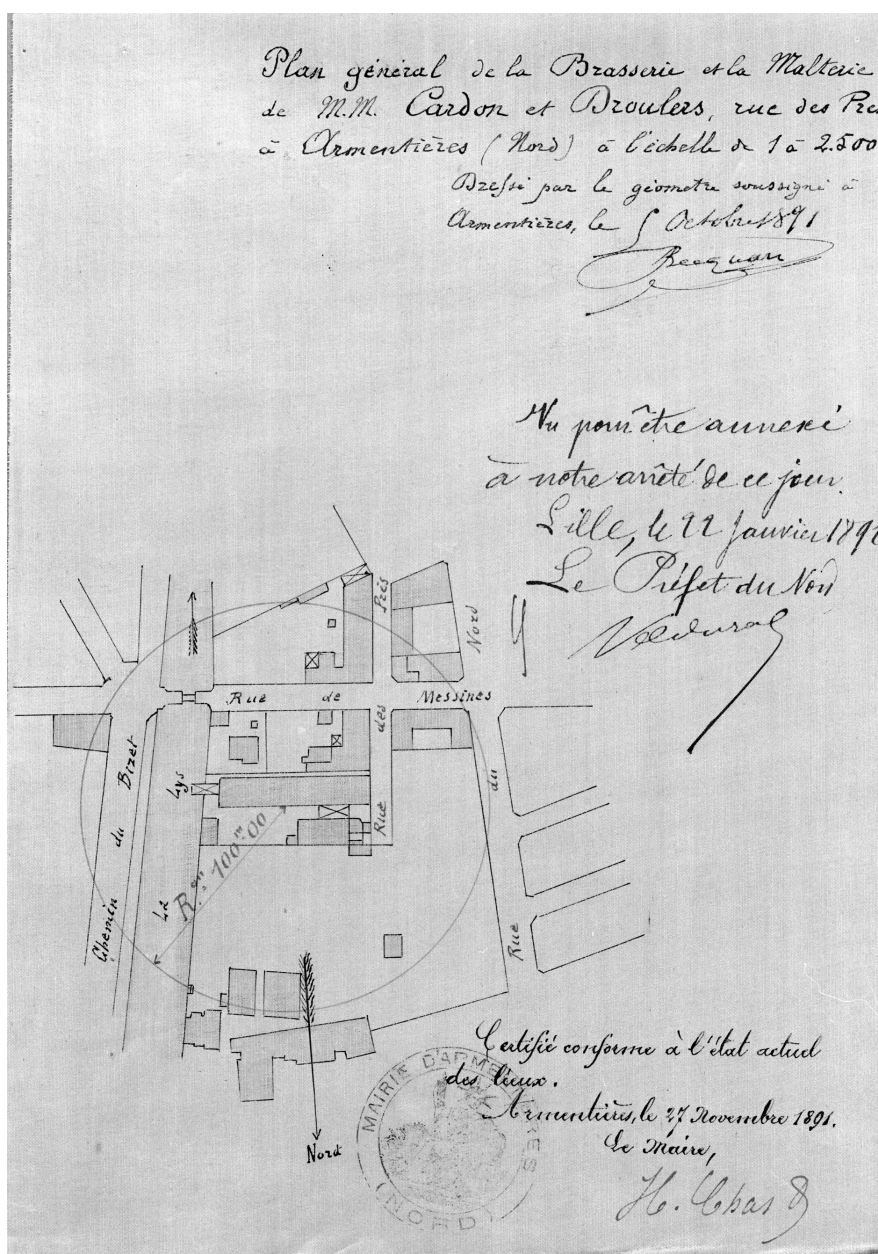 Plan général de la Brasserie et la Malterie
de M.M. Cardon et Droulers, rue des Pré
à Armentières (Nord) à l'échelle de 1 à 2.500
Dressé par le géomètre soussigné à
Armentières, le 5 Octobre 1891
Becquart
Vu pour être annexé
à notre arrêté de ce jour.
Lille, le 22 Janvier 189
Le Préfet du Nord
Rue de Messines
Rue des Prés
Rue du Nord
Chemin du Bizet
La Lys
R.on 100m00
Nord
Certifié conforme à l'état actuel
des lieux.
Armentières, le 27 Novembre 1891.
Le Maire,
H. Chas
MAIRIE D'ARMENTIÈRES
(NORD)